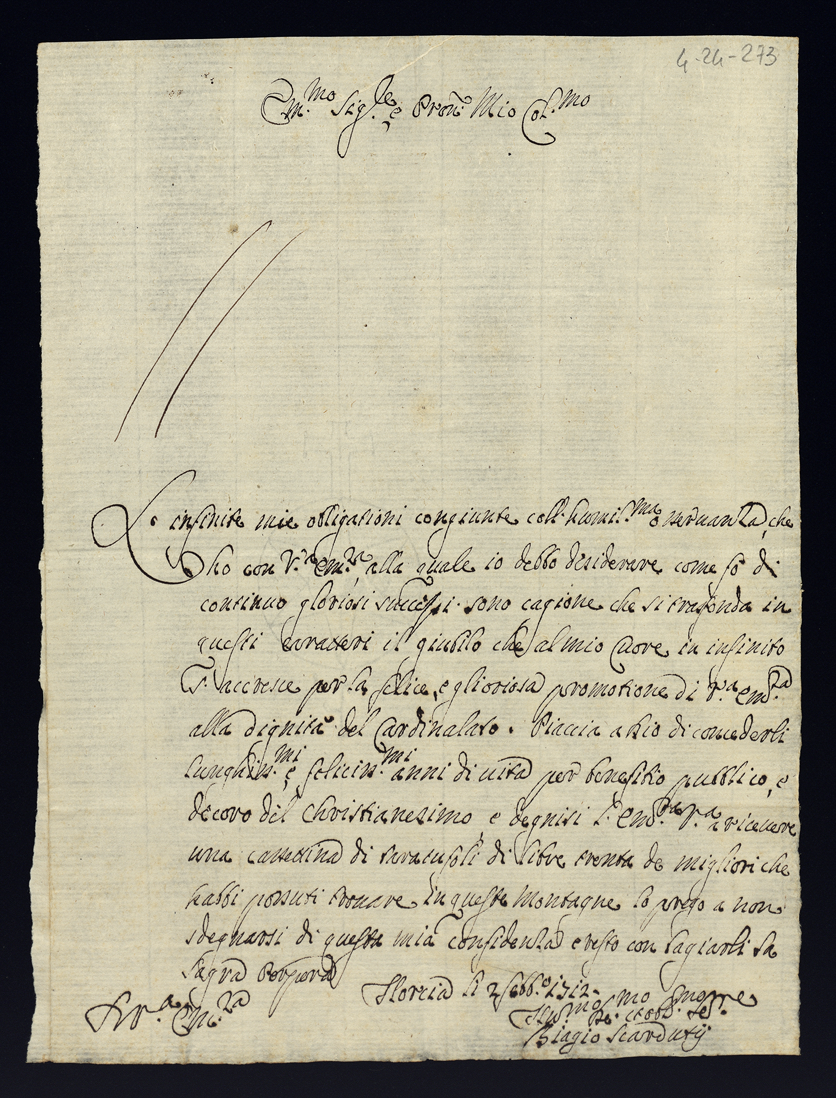 4-24-273
Em.mo Sig.re e Pron. Mio Col.mo
Le infinite mie obligationi congiunte coll'humil.ma osservanza, che
ho con V.ra Em.za alla quale io debbo desiderare come fò di
continuo gloriosi successi. sono cagione che si trasfonda in
questi caratteri il giubilo che al mio cuore in infinito
s'accresce per la felice, e glioriosa promotione di V.ra Em.za
alla dignità del Cardinalato. Piaccia a Dio di concederli
lunghiss.mi e feliciss.mi anni di vita per benefitio pubblico, e
decoro del Christianesimo, e degnisi l'Em.za V.ra a ricevere
una cassettina di taratufoli di libre trenta de migliori che
habbi possuti trovare in queste montagne lo prego a non
sdegnarsi di questa mia confidenza e resto con bagiarli la
sagra Porpora
Norcia li 2 febb.o 1712.
di V.ra Em.za
Hu.mo De.mo et obbl. Se.re
Biagio Scardutij